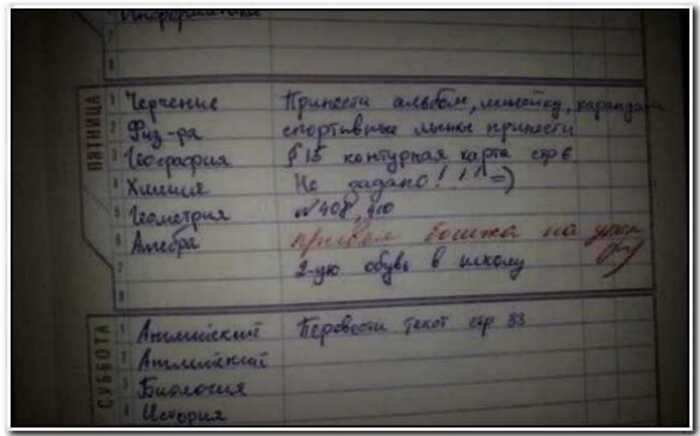 Информатика
7
8
ПЯТНИЦА
1 Черчение Принести альбом, линейку, карандаш
2 Физ-ра спортивные лыжи принести
3 География § 15 контурная карта стр 6
4 Химия Не задано!!! =)
5 Геометрия №408, 410
6 Алгебра привел бомжа на урок
7 2-ую обувь в школу
8
СУББОТА
1 Английский Перевести текст стр 33
2 Английский
3 Биология
4 История